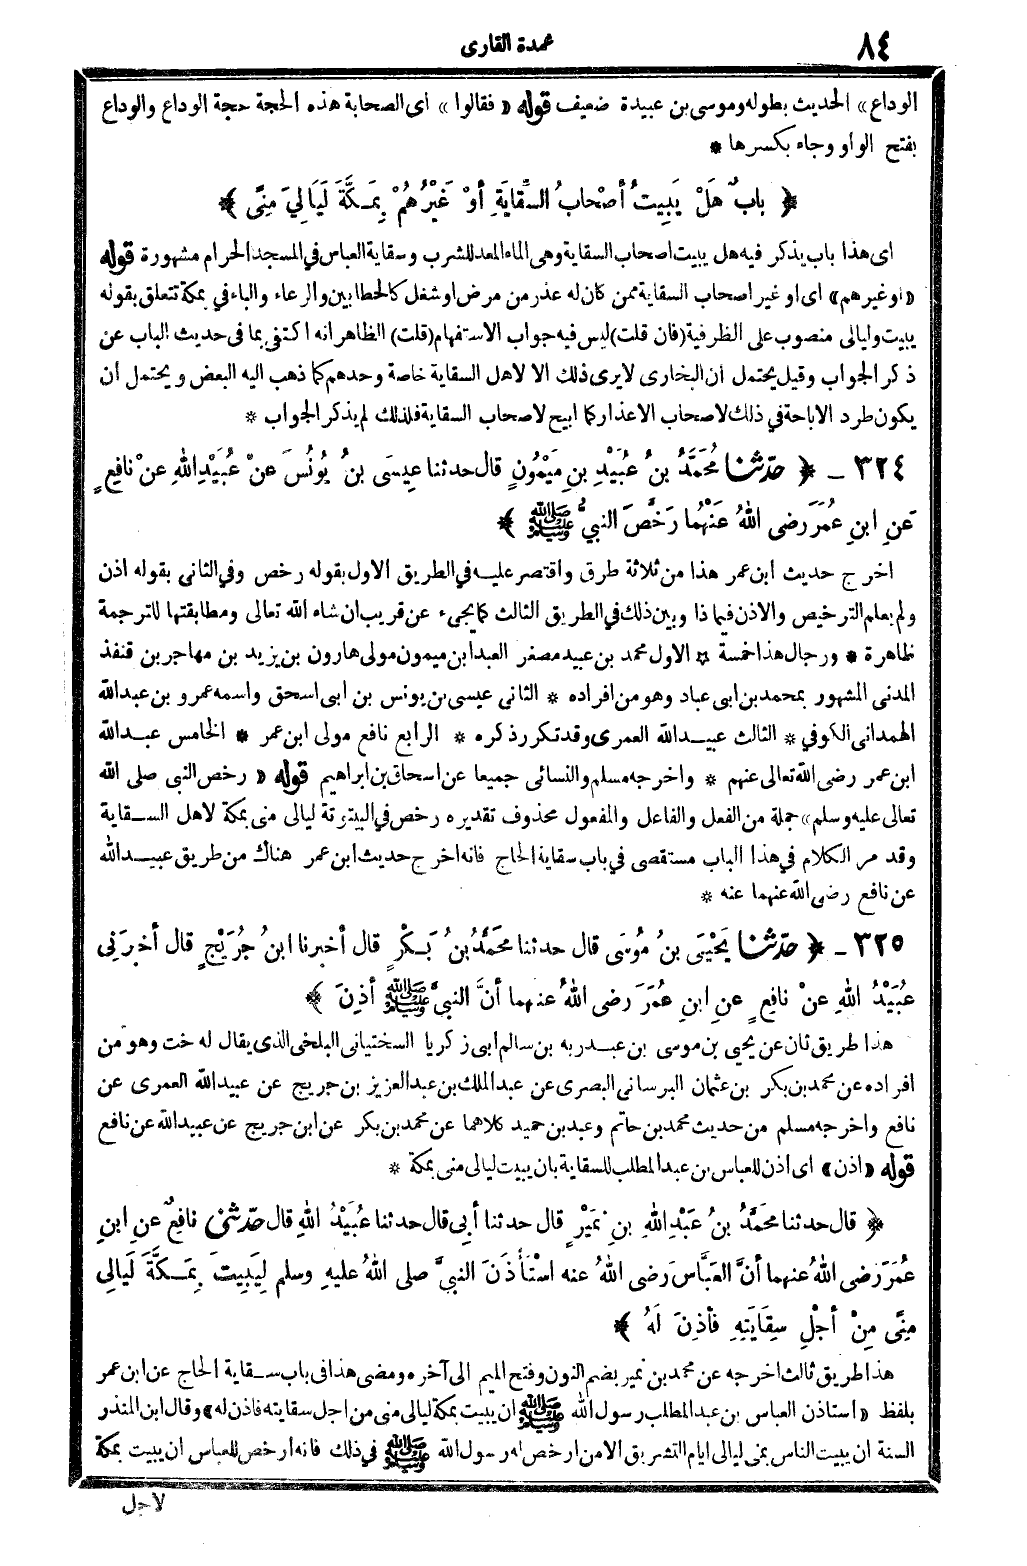 ٨٤
عمدة القارى
الوداع» الحديث بطوله وموسى بن عبيدة ضعيف قوله «فقالوا» اى الصحابة هذه الحجة حجة الوداع والوداع
بفتح الواو وجاء بكسرها *
﴿ بابٌ هَلْ يَبِيتُ أصْحابُ السِّقايَةِ أوْ غَيْرُهُمْ بِمَكَّةَ لَيَالِيَ مِنًى ﴾
اى هذا باب يذكر فيه هل يبيت اصحاب السقاية وهى الماء المعد للشرب وسقاية العباس في المسجد الحرام مشهورة قوله
«اوغيرهم» اى او غير اصحاب السقاية ممن كان له عذر من مرض او شغل كالحطابين والرعاء والباء في بمكة تتعلق بقوله
يبيت وليالى منصوب على الظرفية (فان قلت) ليس فيه جواب الاستفهام (قلت) الظاهر انه اكتفى بما فى حديث الباب عن
ذكر الجواب وقيل يحتمل أن البخارى لا يرى ذلك الا لاهل السقاية خاصة وحدهم كما ذهب اليه البعض ويحتمل أن
يكون طرد الاباحة في ذلك لاصحاب الاعذار كما ابيح لاصحاب السقاية فلذلك لم يذكر الجواب *
٣٢٤ - ﴿ حدّثنا مُحَمَّدُ بنُ عُبَيْدِ بنِ مَيْمُونٍ قال حدثنا عِيسَى بنُ يُونُسَ عنْ عُبَيْدِ اللهِ عنْ نافِعٍ
عَنِ ابنِ عُمَرَ رضى اللهُ عَنْهُما رَخَّصَ النبيُّ ﷺ ﴾
اخرج حديث ابن عمر هذا من ثلاثة طرق واقتصر عليه في الطريق الاول بقوله رخص وفي الثانى بقوله اذن
ولم يعلم الترخيص والاذن فيما ذا وبين ذلك في الطريق الثالث كما يجيء عن قريب ان شاء الله تعالى ومطابقتها للترجمة
ظاهرة * ورجال هذا خمسة * الاول محمد بن عبيد مصغر العبد ابن ميمون مولى هارون بن يزيد بن مهاجر بن قنفذ
المدنى المشهور بمحمد بن ابى عباد وهو من افراده * الثانى عيسى بن يونس بن ابى اسحق واسمه عمرو بن عبد الله
الهمدانى الكوفي * الثالث عبيد الله العمرى وقد تكرر ذكره * الرابع نافع مولى ابن عمر * الخامس عبد الله
ابن عمر رضى الله تعالى عنهم * واخرجه مسلم والنسائى جميعا عن اسحاق بن ابراهيم قوله «رخص النبى صلى الله
تعالى عليه وسلم» جملة من الفعل والفاعل والمفعول محذوف تقديره رخص في البيتوتة ليالى منى بمكة لاهل السقاية
وقد مر الكلام في هذا الباب مستقصى في باب سقاية الحاج فانه اخرج حديث ابن عمر هناك من طريق عبيد الله
عن نافع رضى الله عنهما عنه *
٣٢٥ - ﴿ حدّثنا يَحْيَى بنُ مُوسَى قال حدثنا محَمَّدُ بنُ بَكْرٍ قال أخبرنا ابنُ جُرَيْجٍ قال أخبرَنِى
عُبَيْدُ اللهِ عنْ نافِعٍ عنِ ابنِ عُمَرَ رضى اللهُ عنهما أنَّ النبيَّ ﷺ أذِنَ ﴾
هذا طريق ثان عن يحيى بن موسى بن عبد ربه بن سالم ابى زكريا السختيانى البلخى الذى يقال له خت وهو من
افراده عن محمد بن بكر بن عثمان البرسانى البصرى عن عبد الملك بن عبد العزيز بن جريج عن عبيد الله العمرى عن
نافع واخرجه مسلم من حديث محمد بن حاتم وعبد بن حميد كلاهما عن محمد بن بكر عن ابن جريج عن عبيد الله عن نافع
قوله «اذن» اى اذن للعباس بن عبد المطلب للسقاية بان يبيت ليالى منى بمكة *
﴿ قال حدثنا محَمَّدُ بنُ عَبْدِ اللهِ بنِ نُمَيْرٍ قال حدثنا أبِى قال حدثنا عُبَيْدُ اللهِ قال حدّثنى نافِعٌ عنِ ابنِ
عُمَرَ رضى اللهُ عنهما أنَّ العَبَّاسَ رضى اللهُ عنه اسْتَأْذَنَ النبيَّ صلى اللهُ عليهِ وسلم لِيَبِيتَ بِمَكَّةَ لَيالِى
مِنًى مِنْ أجْلِ سِقايَتِهِ فأذِنَ لَهُ ﴾
هذا طريق ثالث اخرجه عن محمد بن نمير بضم النون وفتح الميم الى آخره ومضى هذا فى باب سقاية الحاج عن ابن عمر
بلفظ «استاذن العباس بن عبد المطلب رسول الله ﷺ ان يبيت بمكة ليالى منى من اجل سقايته فاذن له» وقال ابن المنذر
السنة ان يبيت الناس بمنى ليالى ايام التشريق الا من ارخص له رسول الله ﷺ في ذلك فانه أرخص للعباس ان يبيت بمكة
لاجل